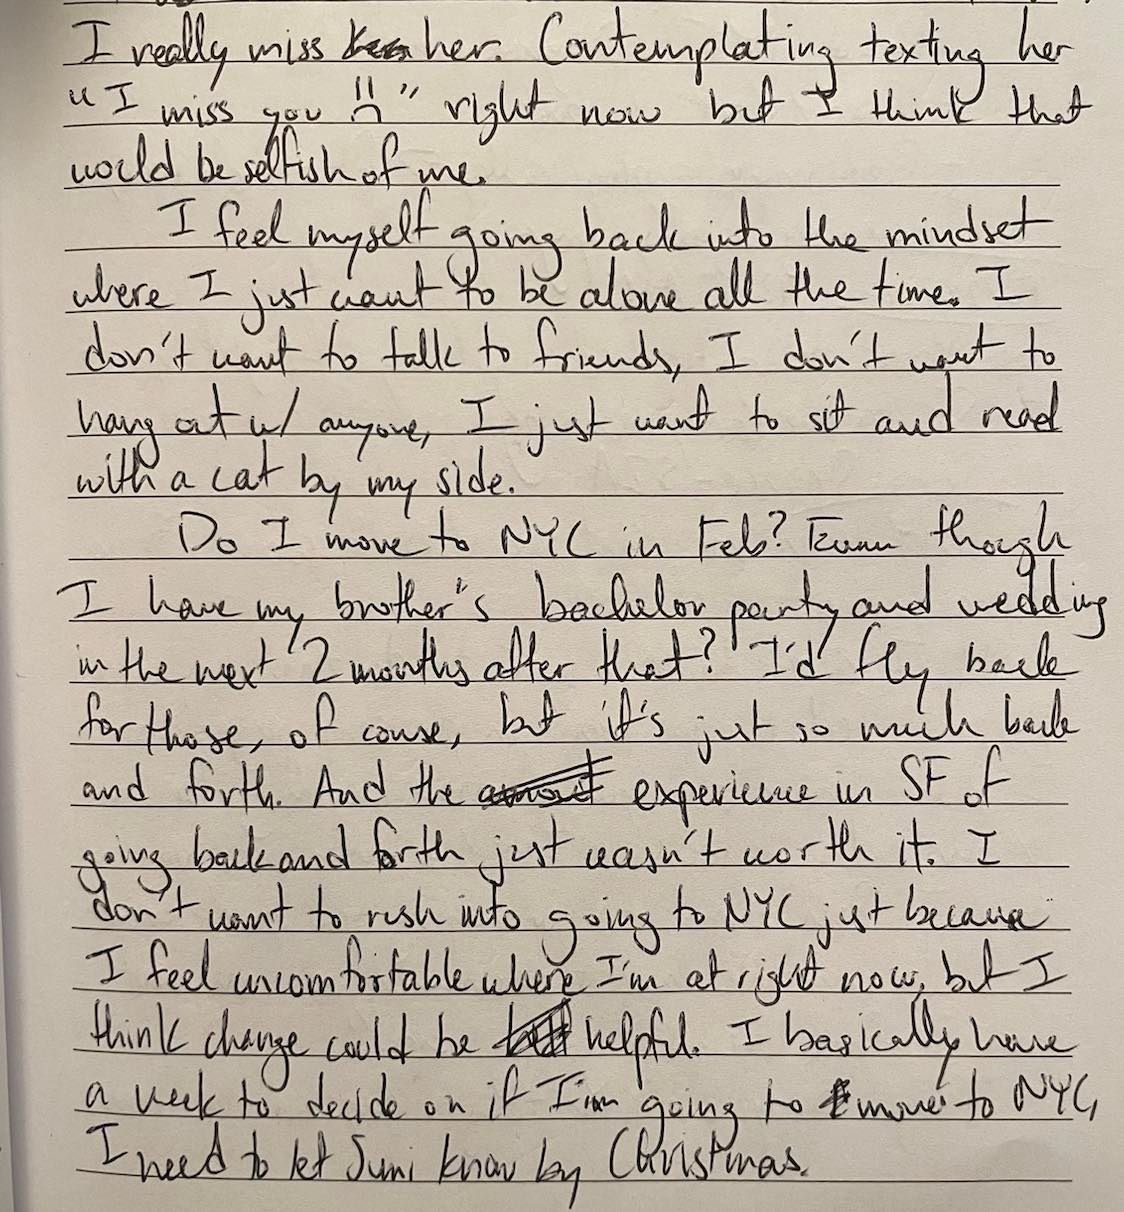 I really miss her. Contemplating texting her
"I miss you :(" right now but I think that
would be selfish of me.
I feel myself going back into the mindset
where I just want to be alone all the time. I
don't want to talk to friends, I don't want to
hang out w/ anyone, I just want to sit and read
with a cat by my side.
Do I move to NYC in Feb? Even though
I have my brother's bachelor party and wedding
in the next 2 months after that? I'd fly back
for those, of course, but it's just so much back
and forth. And the experience in SF of
going back and forth just wasn't worth it. I
don't want to rush into going to NYC just because
I feel uncomfortable where I'm at right now, but I
think change could be helpful. I basically have
a week to decide on if I'm going to move to NYC,
I need to let Jumi know by Christmas.